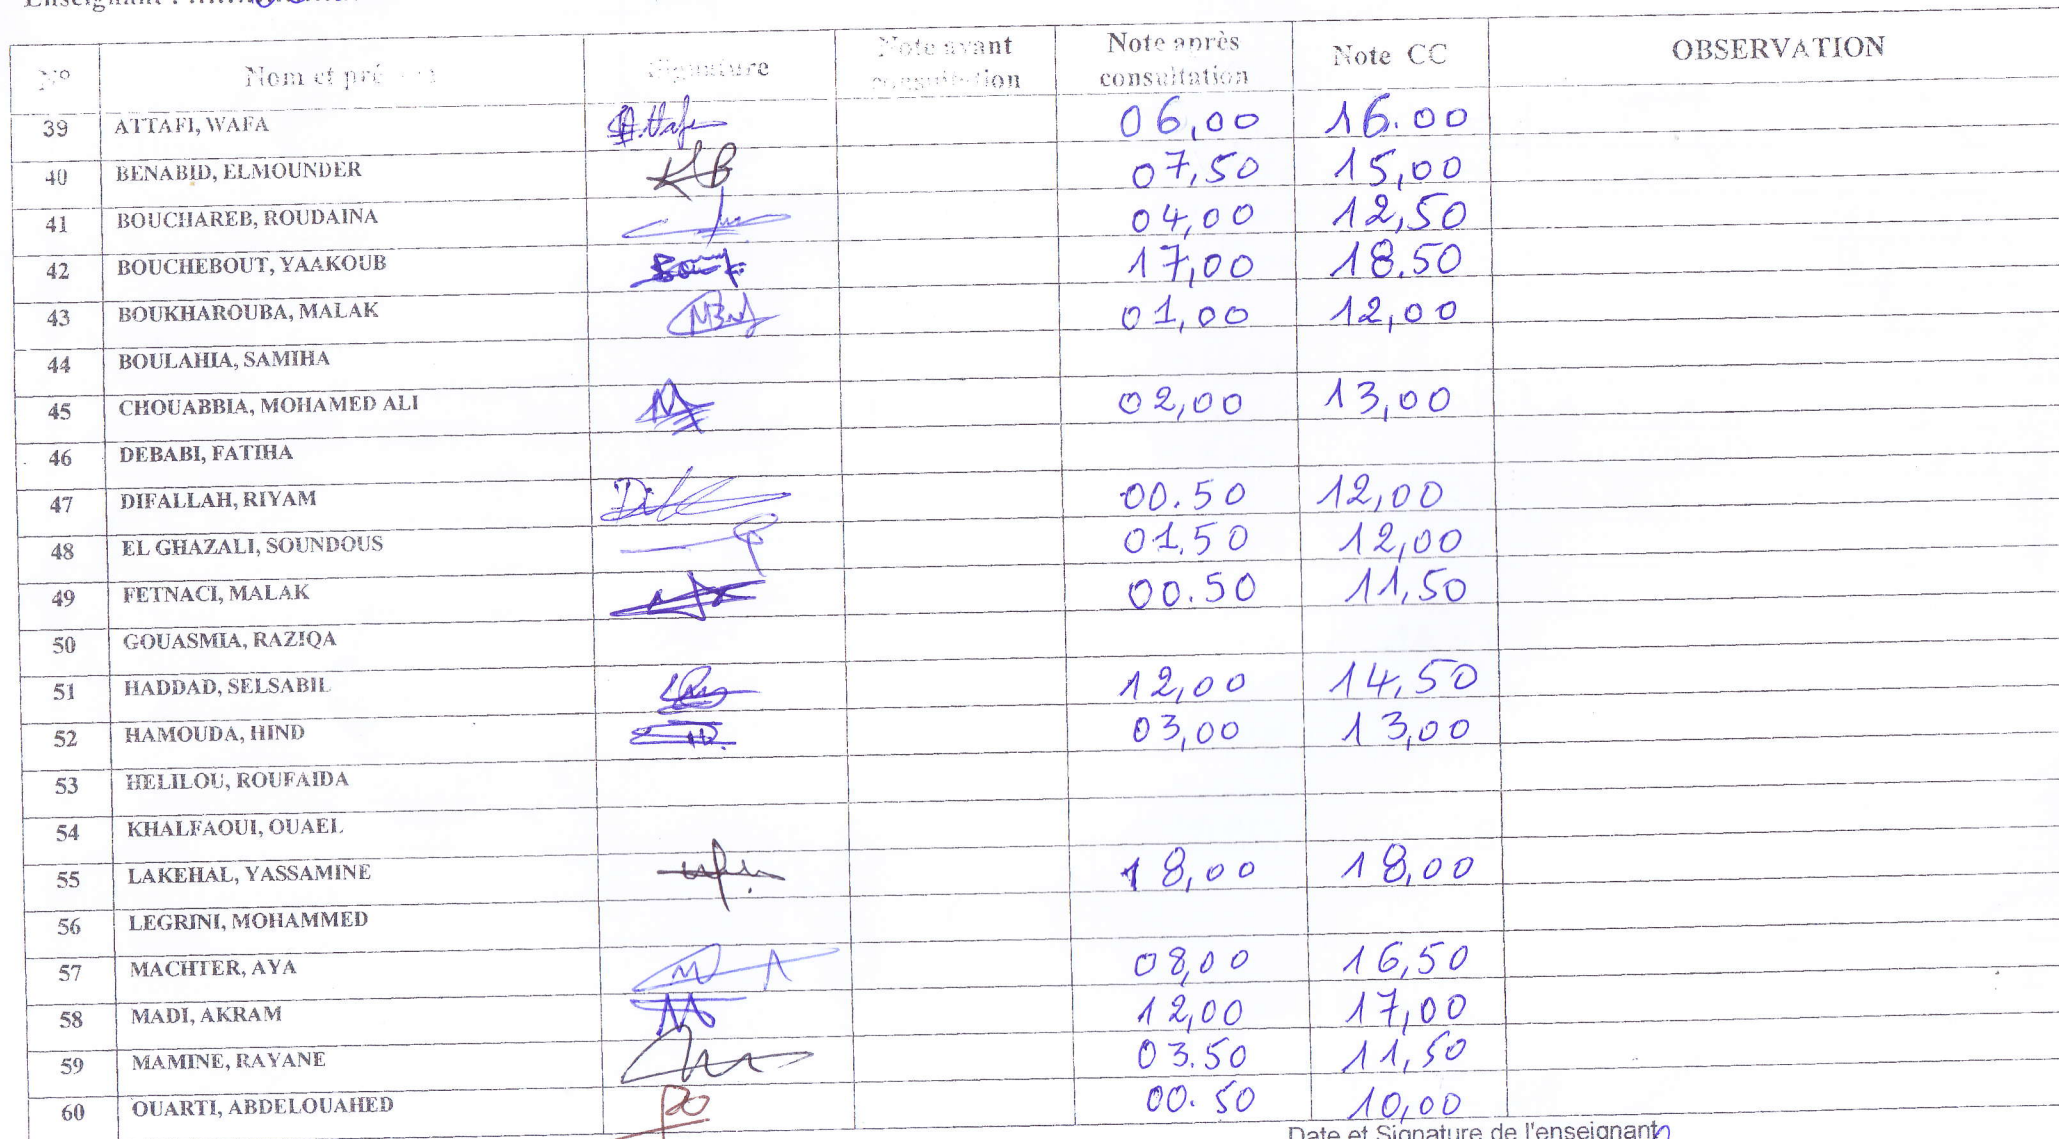 Enseignant :
N° Nom et pré Signature Note avant consultation Note après consultation Note CC OBSERVATION
39 ATTAFI, WAFA A.ttafi 06,00 16.00
40 BENABID, ELMOUNDER 07,50 15,00
41 BOUCHAREB, ROUDAINA 04,00 12,50
42 BOUCHEBOUT, YAAKOUB 17,00 18.50
43 BOUKHAROUBA, MALAK 01,00 12,00
44 BOULAHIA, SAMIHA
45 CHOUABBIA, MOHAMED ALI 02,00 13,00
46 DEBABI, FATIHA
47 DIFALLAH, RIYAM 00.50 12,00
48 EL GHAZALI, SOUNDOUS 01.50 12,00
49 FETNACI, MALAK 00.50 11,50
50 GOUASMIA, RAZIQA
51 HADDAD, SELSABIL 12,00 14,50
52 HAMOUDA, HIND 03,00 13,00
53 HELILOU, ROUFAIDA
54 KHALFAOUI, OUAEL
55 LAKEHAL, YASSAMINE 18,00 18,00
56 LEGRINI, MOHAMMED
57 MACHTER, AYA 08,00 16,50
58 MADI, AKRAM 12,00 17,00
59 MAMINE, RAYANE 03.50 11,50
60 OUARTI, ABDELOUAHED 00.50 10,00
Date et Signature de l'enseignant